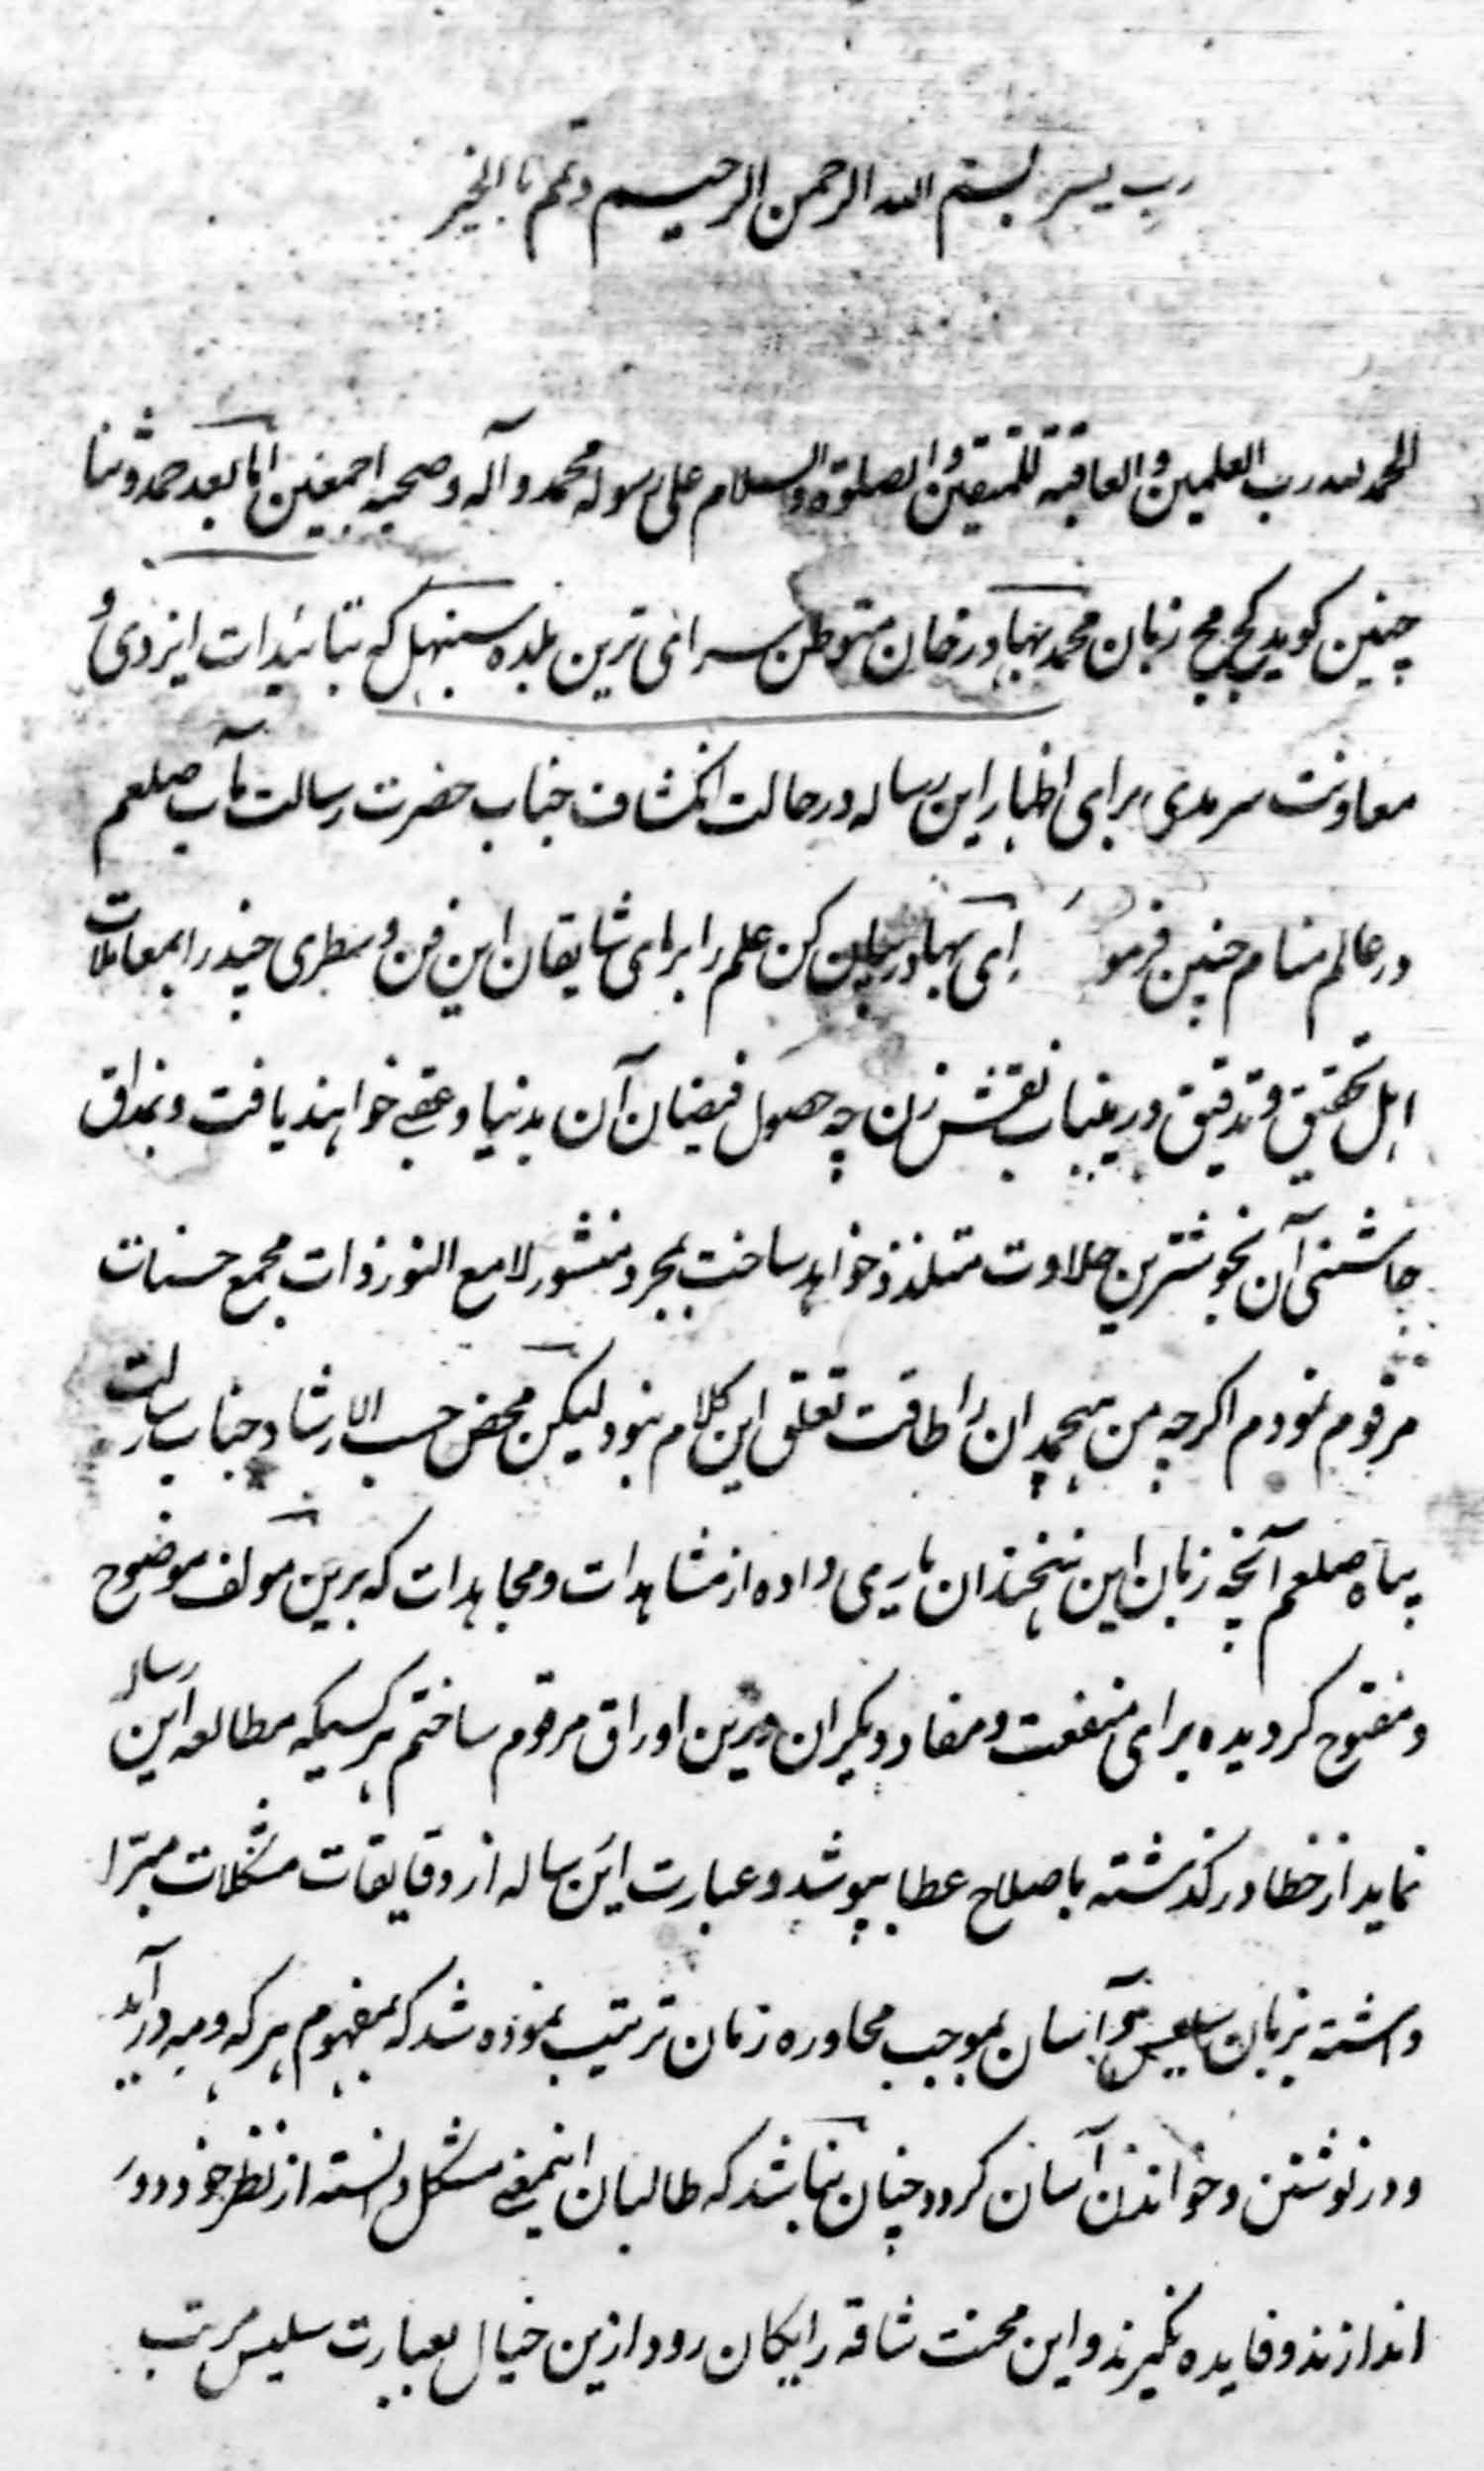 رب یسر بسم الله الرحمن الرحیم و تمم بالخیر
الحمد لله رب العلمین و العاقبه للمتقین و الصلوة والسلام علی رسوله محمد و آله و صحبه اجمعین اما بعد حمد و ثنا
چنین کوید کج مج زبان محمد بهادر خان متوطن سرای ترین بلده سنبهل که بتائیدات ایزدی و
معاونت سرمدی برای اظهار این رساله در حالت انکشاف جناب حضرت رسالت مآب صلعم
در عالم منام چنین فرمو ای بهادر بیان کن علم را برای شایقان این فن و سطری چند را بمعاملات
اهل تحقیق و تدقیق درینباب نقش زن چه حصول فیضان آن بدنیا و عقبی خواهند یافت و بمذاق
چاشنی آن بخوشترین حلاوت متلذذ خواهد ساخت بمجرد منشور لامع النور ذات مجمع حسنات
مرقوم نمودم اکرچه من هیچمدان را طاقت تعلق این کلام نبود لیکن محض حسب الارشاد جناب رسالت
پناه صلعم آنچه زبان این یاری داده از مشاهدات و مجاهدات که برین مولف موضوح
و مفتوح کردیده برای منفعت و مفاد دیکران درین اوراق مرقوم ساختم هر کسیکه مطالعه این رساله
نماید از خطا در کذشته باصلاح عطا بپوشد و عبارت این رساله از دقایقات مشکلات مبرا
داشته بزبان سلیس و آسان بموجب محاوره زمان ترتیب نموده شد که بمفهوم هر که و مه در آید
و در نوشتن و خواندن آسان کردد چنان نباشد که طالبان اینمعنی مشکل دانسته از نظر خود دور
اندازند و فایده نکیرند و این محنت شاقه رایکان رود ازین خیال بعبارت سلیس مرتب